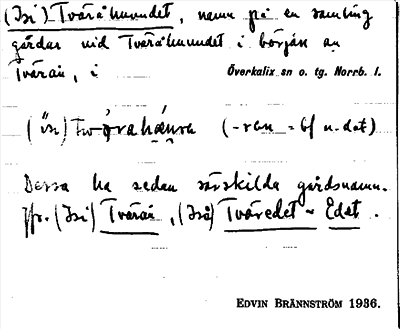 (Isi) Tväråhuvudet, namn på en samling
gårdar vid Tväråhuvudet i början av
Tvärån, i Överkalix sn o. tg. Norrb. l.
(-ran = bf n. dat)
Dessa ha sedan särskilda gårdsnamn.
Jfr. (Isi) Tvärån, (Iså) Tväredet ~ Edet.
EDVIN BRÄNNSTRÖM 1936.